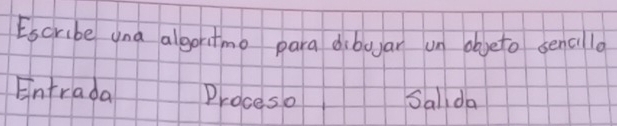 Escribe una algoritmo para dibujar un objeto sencillo
Entrada Proceso Salida